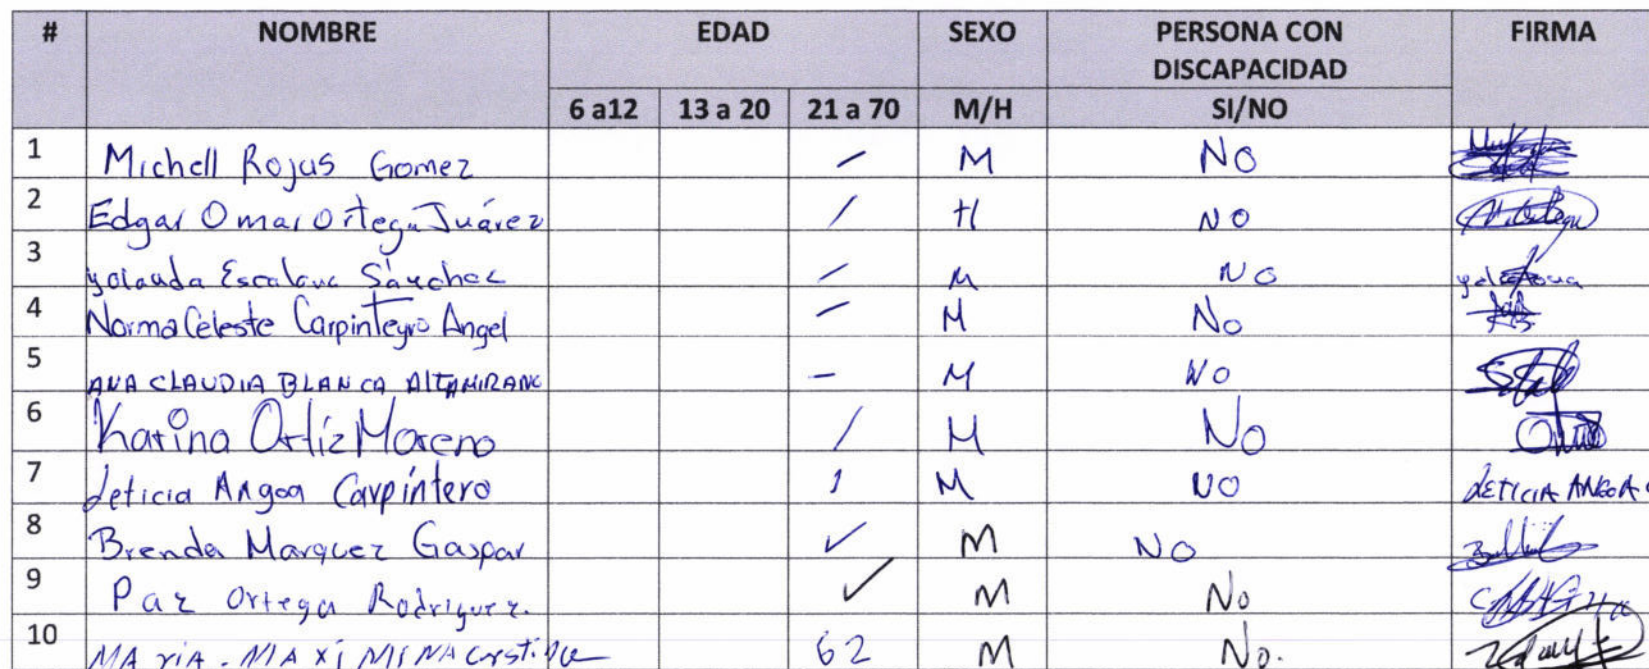 # NOMBRE EDAD SEXO PERSONA CON DISCAPACIDAD FIRMA
6 a12 13 a 20 21 a 70 M/H SI/NO
1 Michell Rojas Gomez / M No
2 Edgar Omar Ortega Juárez / H NO
3 yolanda Escalona Sánchez / M NO
4 Norma Celeste Carpinteyro Angel / M No
5 ANA CLAUDIA BLANCA ALTAMIRANO - M NO
6 Karina Ortíz Moreno / M No
7 Leticia Angoa Carpíntero / M NO LETICIA ANGOA
8 Brenda Marquez Gaspar ✓ M NO
9 Paz Ortega Rodriguez. ✓ M No
10 MARIA. MAXIMINA 62 M No.